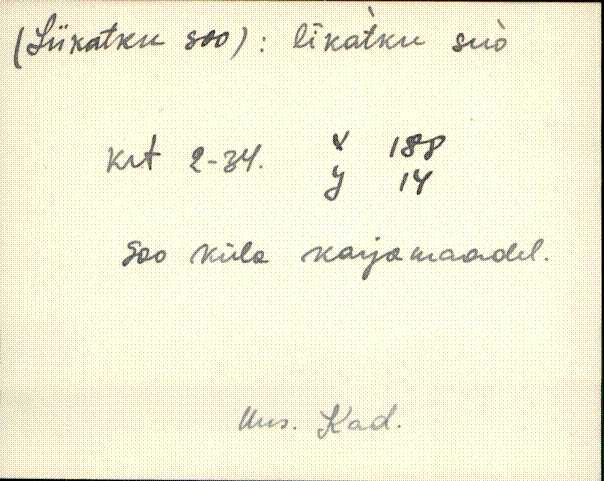 (Liikatku soo): līkàtku suò
krt 2-34. x 188
y 14
soo küla karjamaadel.
Mus. Kad.